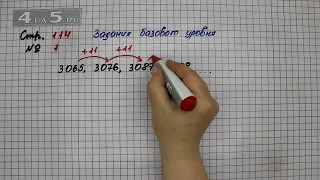 4DA5.RU
Стр. 114 Задания базового уровня
№ 1 +11 +11
3065, 3076, 3087